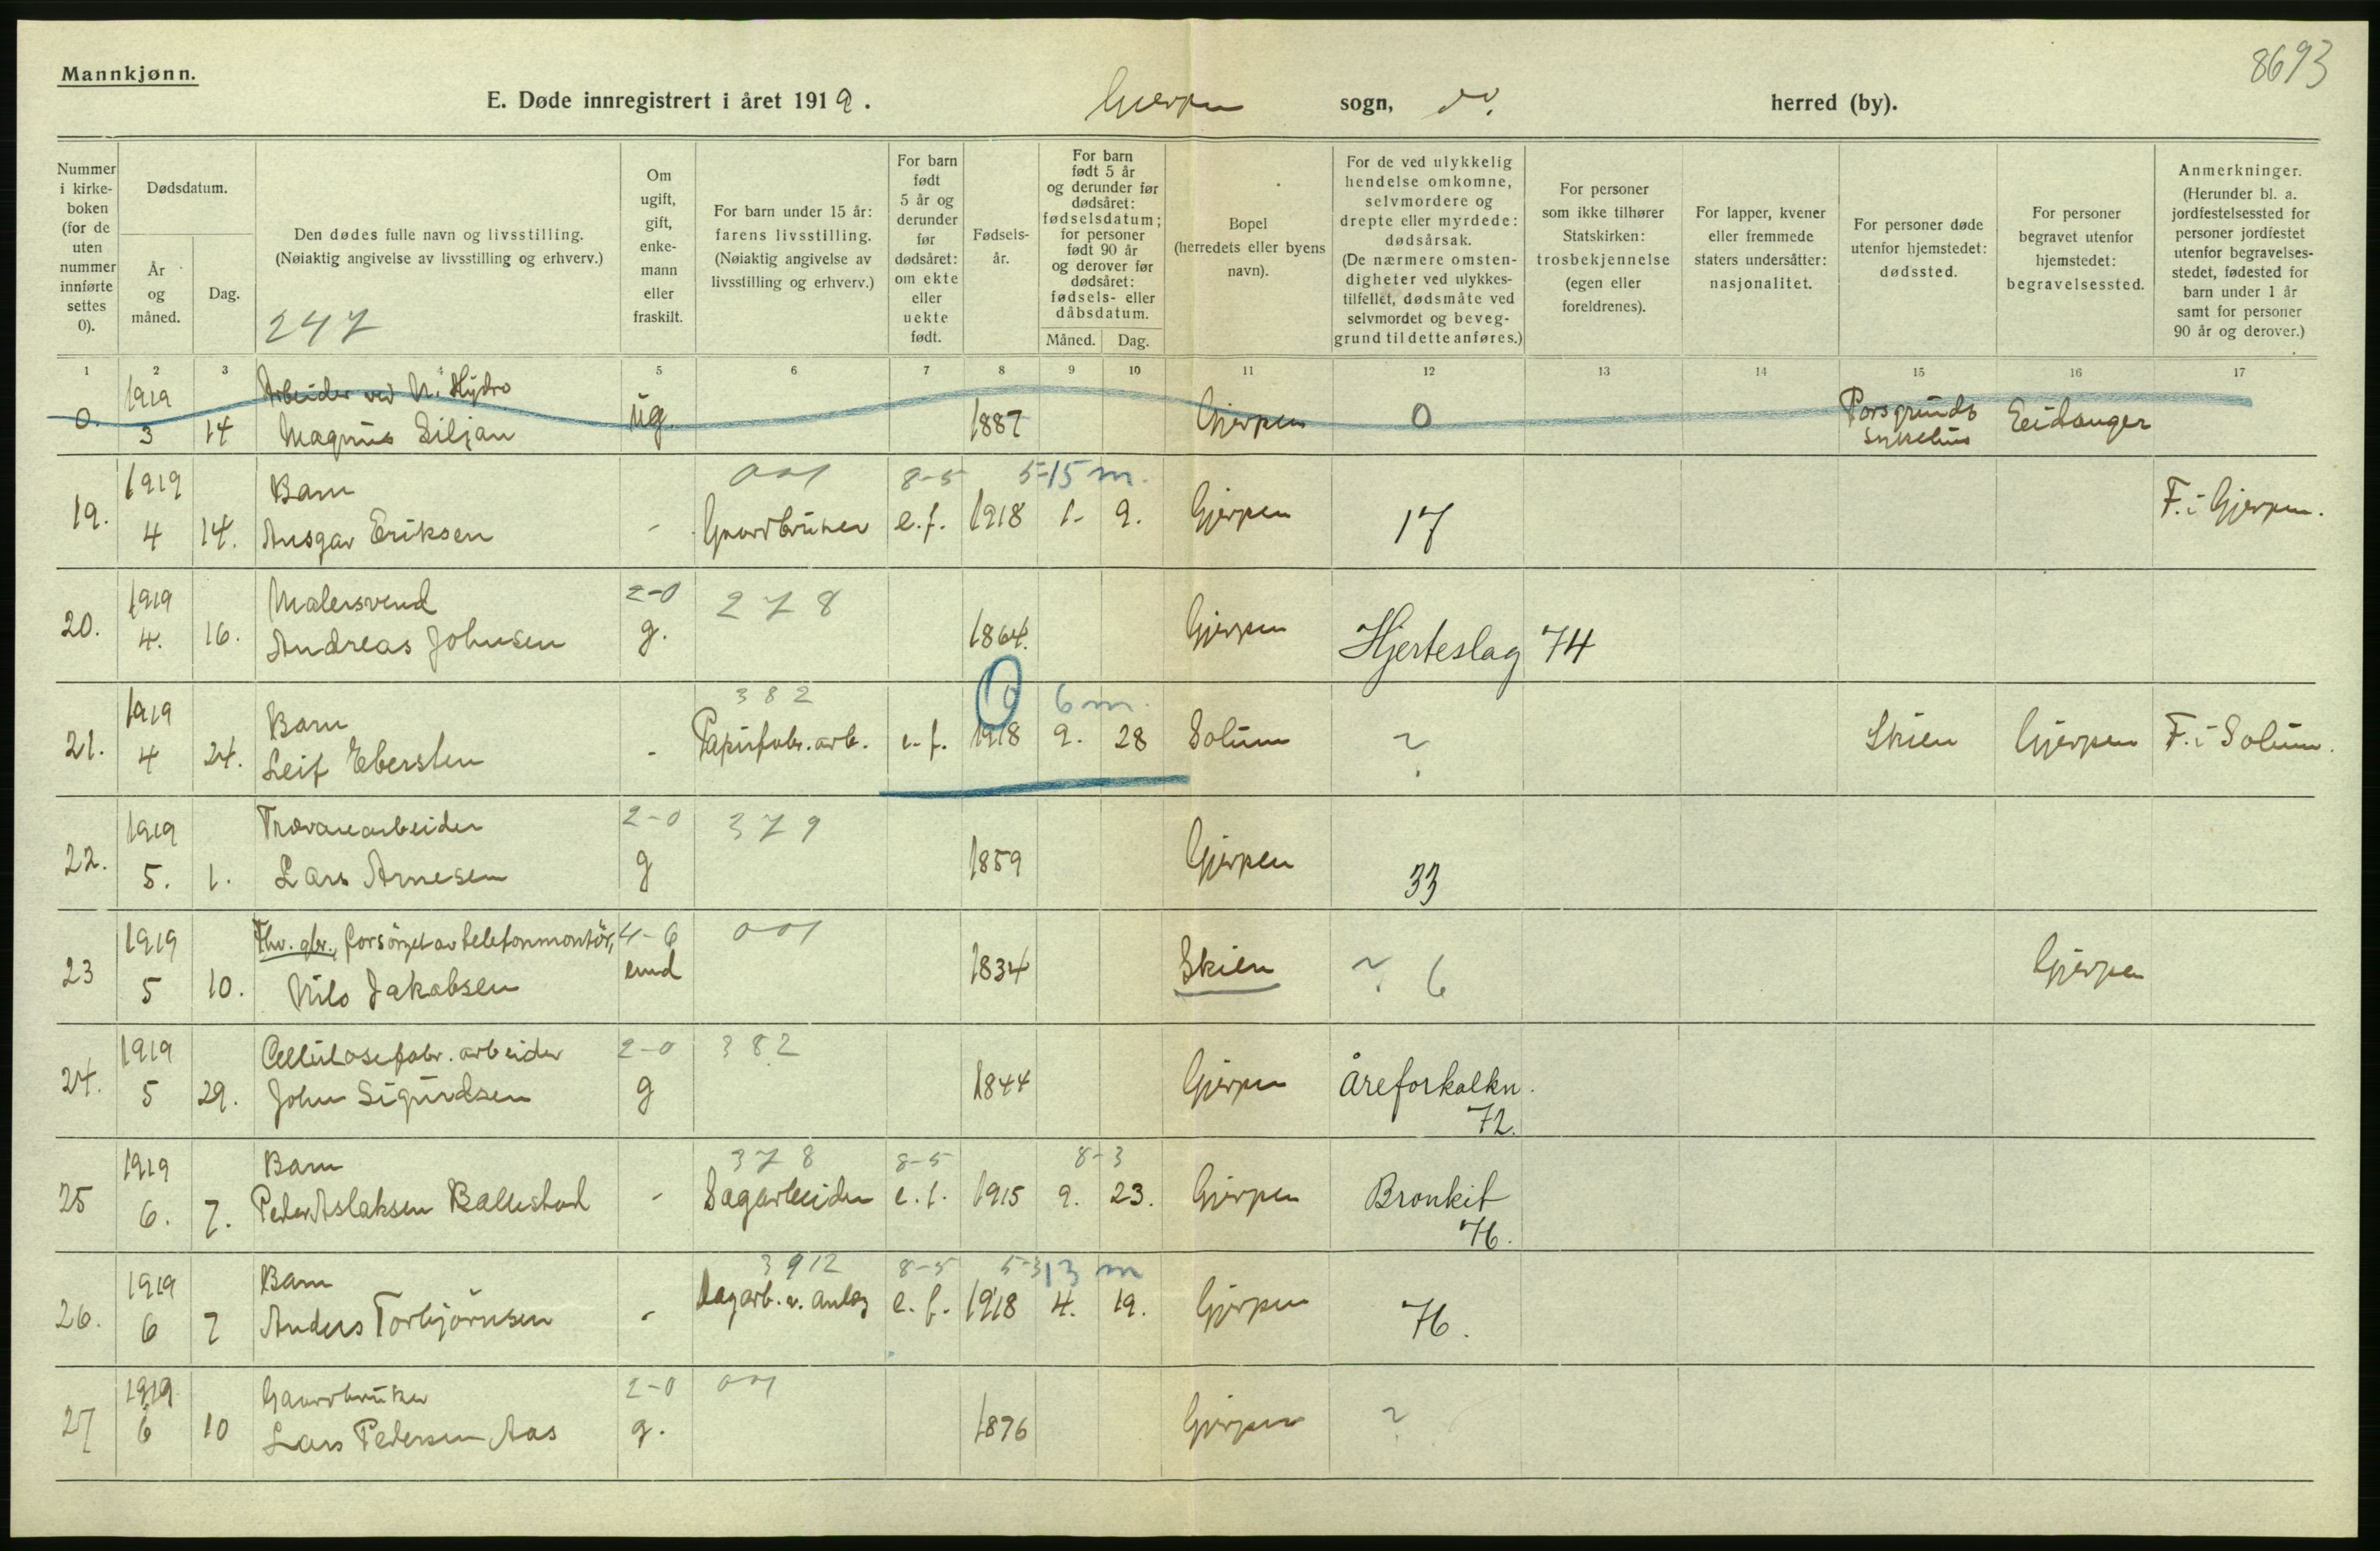 8693
Mannkjønn.
E. Døde innregistrert i året 1919. Gjerpen sogn, do. herred (by).
Nummer i kirke-boken (for de uten nummer innførte settes 0).
Dødsdatum.
År og måned.
Dag.
Den dødes fulle navn og livsstilling.
(Nøiaktig angivelse av livsstilling og erhverv.)
247
Om ugift, gift, enke-mann eller fraskilt.
For barn under 15 år: farens livsstilling.
(Nøiaktig angivelse av livsstilling og erhverv.)
For barn født 5 år og derunder før dødsåret: om ekte eller uekte født.
Fødsels-år.
For barn født 5 år og derunder før dødsåret: fødselsdatum; for personer født 90 år og derover før dødsåret: fødsels- eller dåbsdatum.
Måned. Dag.
Bopel
(herredets eller byens navn).
For de ved ulykkelig hendelse omkomne, selvmordere og drepte eller myrdede: dødsårsak.
(De nærmere omsten-digheter ved ulykkes-tilfellet, dødsmåte ved selvmordet og beveg-grund til dette anføres.)
For personer som ikke tilhører Statskirken: trosbekjennelse (egen eller foreldrenes).
For lapper, kvener eller fremmede staters undersåtter: nasjonalitet.
For personer døde utenfor hjemstedet: dødssted.
For personer begravet utenfor hjemstedet: begravelsessted.
Anmerkninger.
(Herunder bl. a. jordfestelsessted for personer jordfestet utenfor begravelses-stedet, fødested for barn under 1 år samt for personer 90 år og derover.)
1 2 3 4 5 6 7 8 9 10 11 12 13 14 15 16 17
1919 Arbeider ved N. Hydro
0. 3 14 Magnus Siljan ug. 1887 Gjerpen 0 Porsgrunds sykehus Eidanger
1919 Barn 001 8-5 5-15 m.
19. 4 14. Ansgar Eriksen - Gaardbruker e.f. 1918 1- 9. Gjerpen 17 F. i Gjerpen.
1919 Malersvend 2-0 278
20. 4. 16. Andreas Johnsen g. 1864. Gjerpen Hjerteslag 74
1919 Barn 382 0 6 m.
21. 4 24. Leif Ebersten - Papirfabr. arb. e.f. 1918 9. 28 Solum ? Skien Gjerpen F. i Solum.
1919 Trævarearbeider 2-0 379
22. 5. 1. Lars Arnesen g 1859 Gjerpen 33
1919 Fhv. gbr., forsörget av telefonmontör, 4-6 001
23 5 10. Nils Jakobsen emd 1834 Skien ? 6 Gjerpen
1919 Cellulosefabr. arbeider 2-0 382
24. 5 29. John Sigurdsen g 1844 Gjerpen Åreforkalkn. 72.
1919 Barn 378 8-5 8-3
25 6. 7. Peder Aslaksen Ballestad - Sagarbeider e.f. 1915 9. 23. Gjerpen Bronkit 76.
1919 Barn 3912 8-5 5-3 13 m
26. 6 7 Anders Torbjörnsen - Dagarb. v. anlæg e.f. 1918 4. 19. Gjerpen 76.
1919 Gaardbruker 2-0 001
27 6 10 Lars Pedersen Aas g. 1876 Gjerpen ?